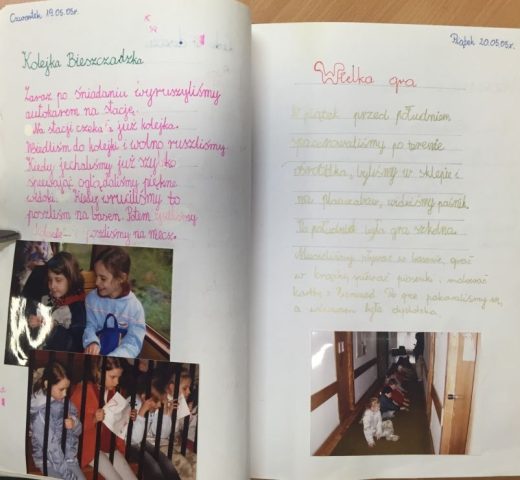 Czwartek 19.05.05r.
Kolejka Bieszczadzka
Zaraz po śniadaniu wyruszyliśmy
autokarem na stację.
Na stacji czekała już kolejka.
Wsiedliśmy do kolejki i wolno ruszliśmy.
Kiedy jechaliśmy już szybko
śpiewając oglądaliśmy piękne
widoki. Kiedy wróciliśmy to
poszliśmy na basen. Potem
i poszliśmy na mecz.
Piątek 20.05.05r.
Wielka gra
W piątek przed południem
spacerowaliśmy po terenie
ośrodka, byliśmy w sklepie i
na placu zabaw, widzieliśmy
Po południu była gra szkolna.
Musieliśmy pływać w basenie, grać
w śpiewać piosenki i malować
kartkę z Po grze pakowaliśmy się,
a wieczorem była dyskoteka.